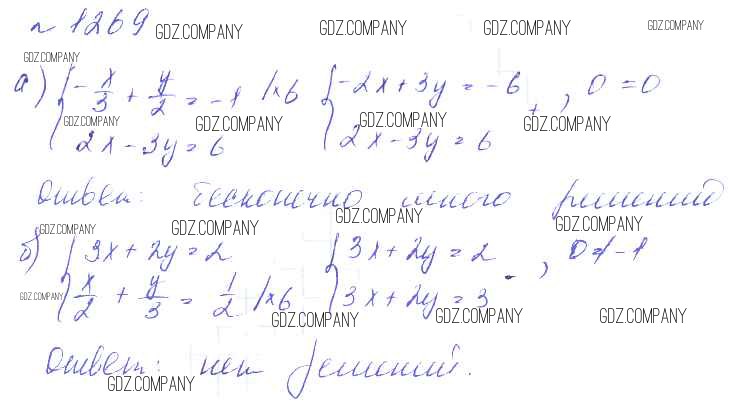 № 1269 GDZ.COMPANY GDZ.COMPANY GDZ.COMPANY GDZ.COMPANY
GDZ.COMPANY
а) { -x/3 + y/2 = -1 |×6 { -2x + 3y = -6 + , 0 = 0
GDZ.COMPANY GDZ.COMPANY GDZ.COMPANY GDZ.COMPANY
2x - 3y = 6 2x - 3y = 6
Ответ: бесконечно много решений
GDZ.COMPANY GDZ.COMPANY GDZ.COMPANY GDZ.COMPANY
б) { 3x + 2y = 2 { 3x + 2y = 2 - , 0 ≠ -1
x/2 + y/3 = 1/2 |×6 3x + 2y = 3
GDZ.COMPANY GDZ.COMPANY GDZ.COMPANY GDZ.COMPANY
Ответ: нет решений.
GDZ.COMPANY